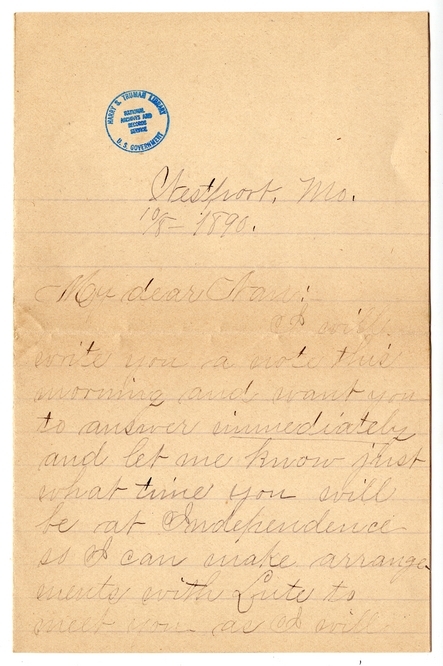 HARRY S. TRUMAN LIBRARY
NATIONAL
ARCHIVES AND
RECORDS
SERVICE
U. S. GOVERNMENT
Westport, Mo.
10/8-1890.
My dear Nan:
I will
write you a note this
morning and want you
to answer immediately
and let me know just
what time you will
be at Independence
so I can make arrange-
ments with Lute to
meet you as I will